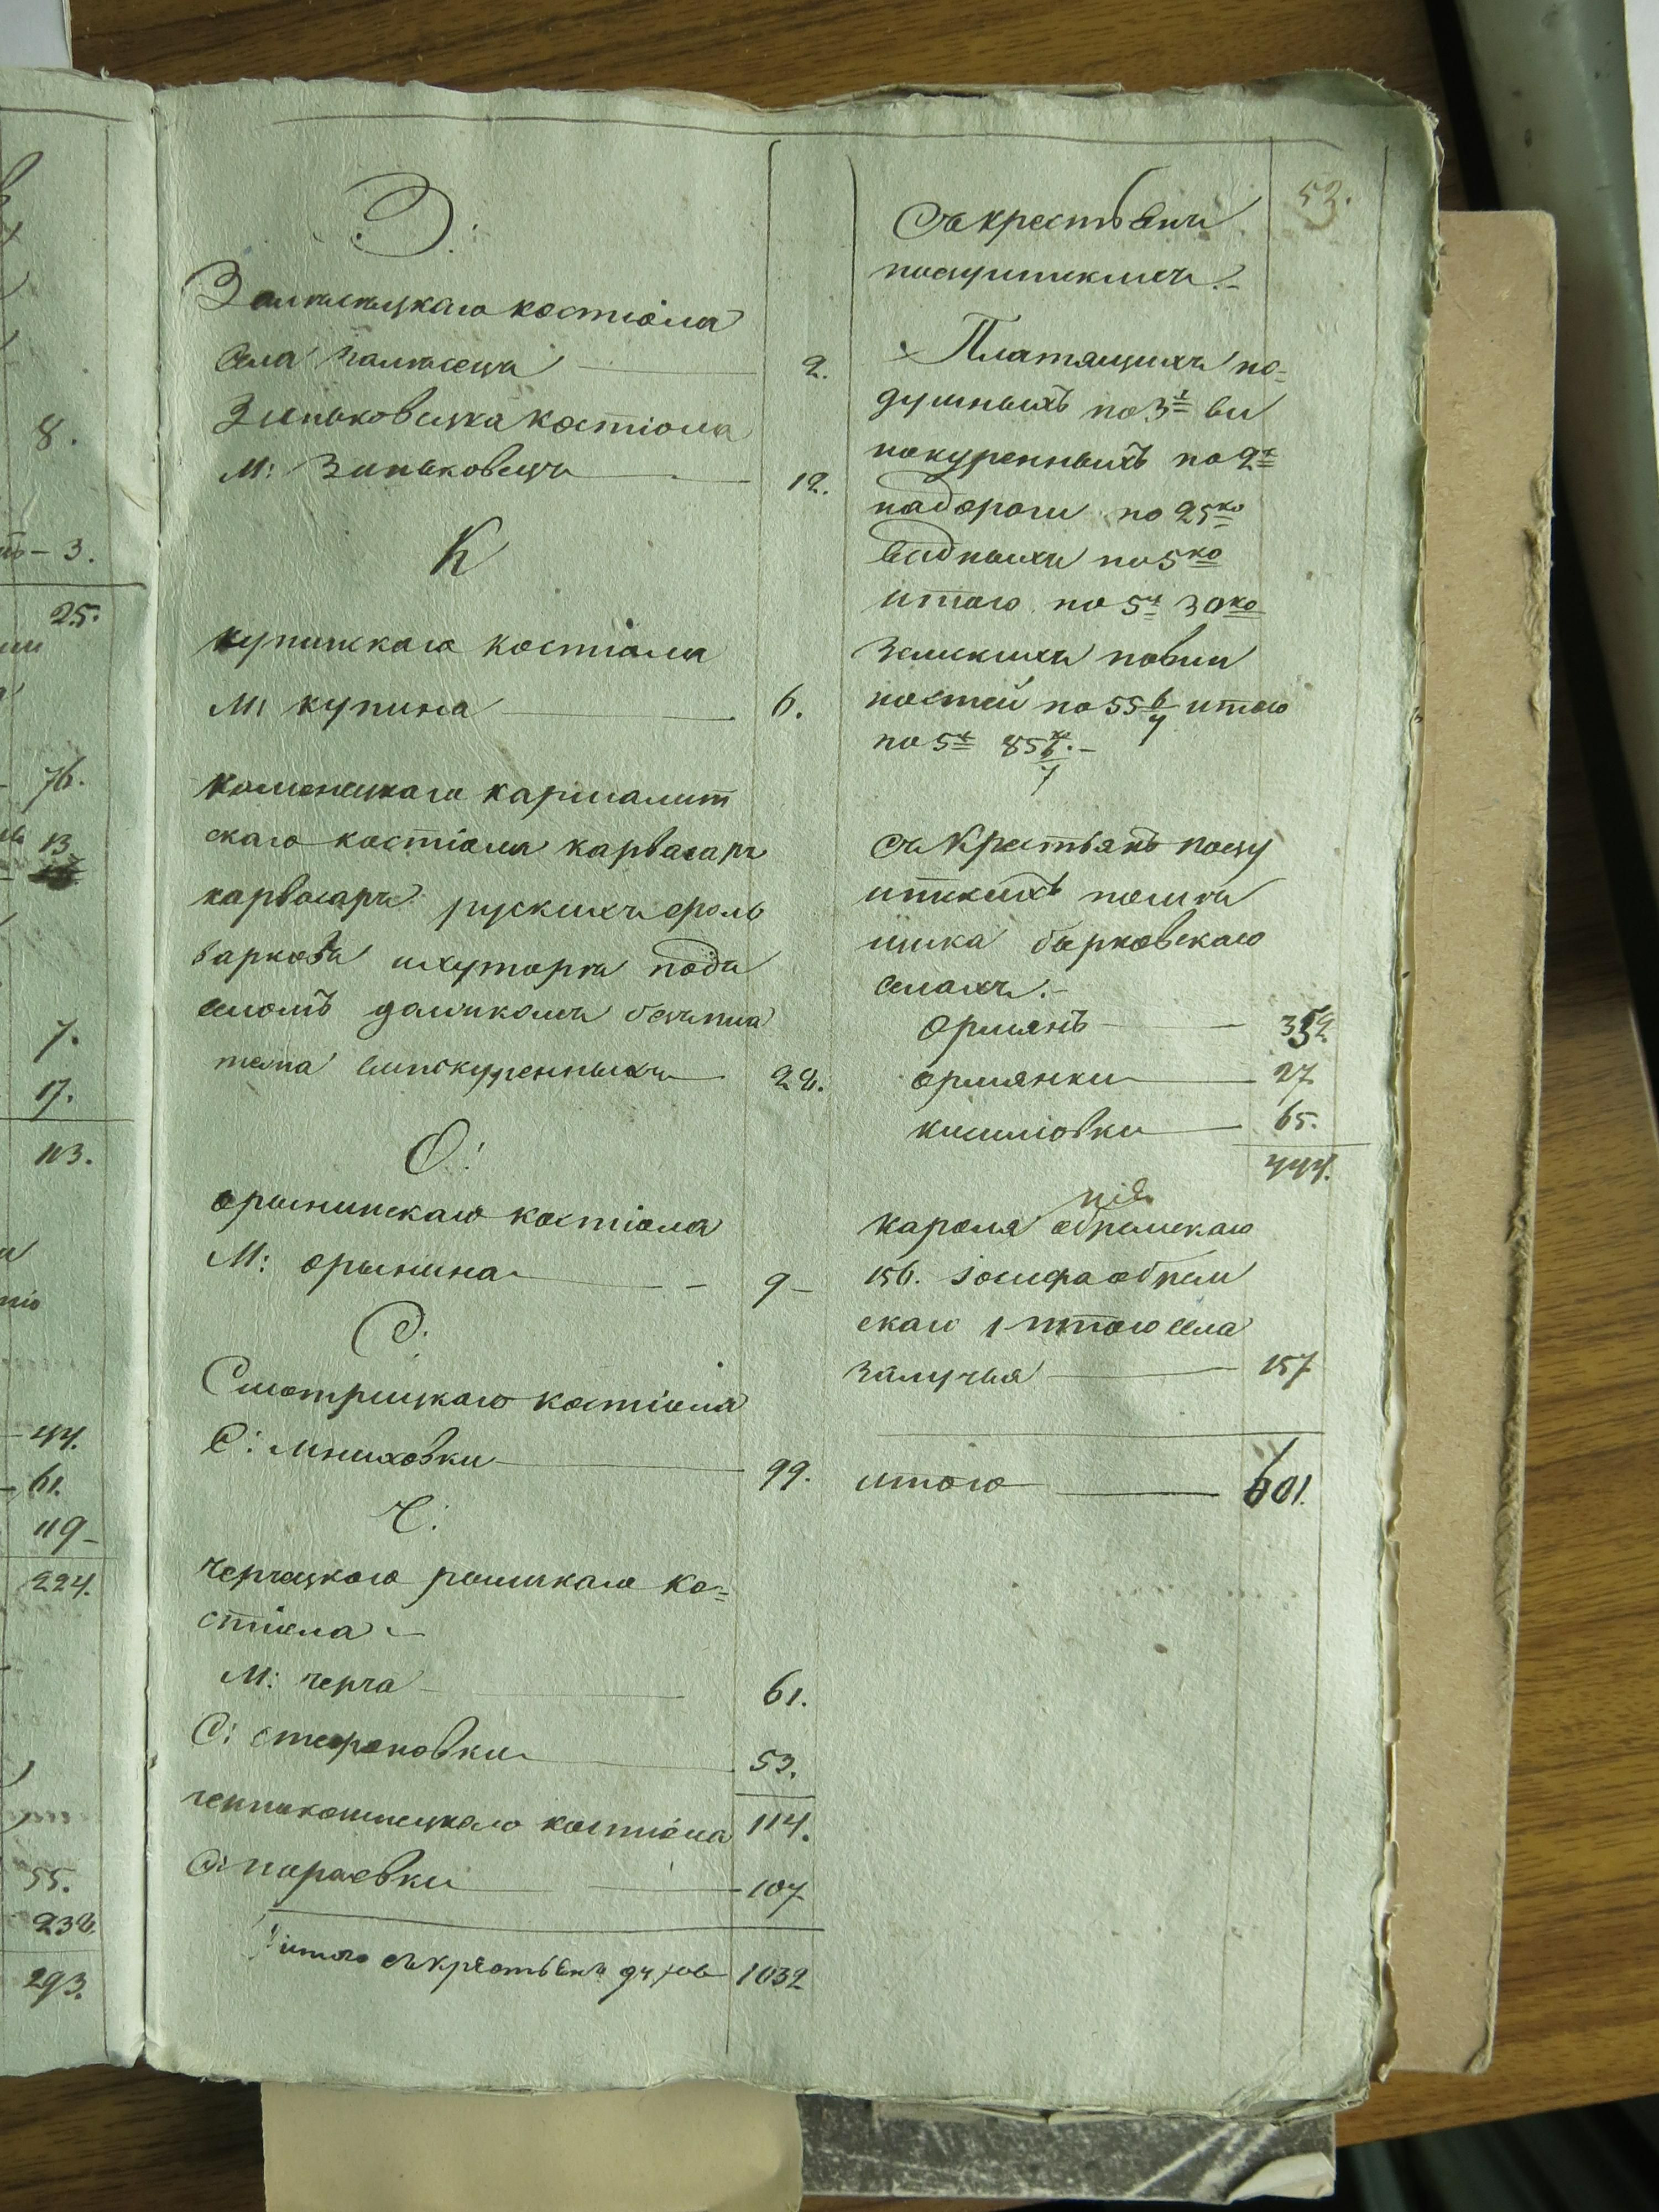 8.
3.
25.
76.
13.
7.
17.
113.
44.
61.
119
224.
55.
238.
293.
З:
костіола
села 2.
Зиньковецка костіола
М: Зиньковецъ 12.
К
купинскаго костіола
М: купина 6.
каменецкаго кармалит
скаго костіола карвасаръ
карвасаръ рускихъ фоль
варковъ ихуторга подъ
селомъ
винокуренныхъ 28.
О:
орынинскаго костіола
М: орынина 9
С:
Смотрицкаго костіола
С: мниховки 99.
Ч:
черчецкого римскаго ко=
стіола
М: черча 61.
С: стефановки 53.
114.
костіола
С: параевки 107
итого съкрестьянъ духов 1032
53.
Съкрестьянъ
поезуитскихъ.
Платящихъ по=
душныхъ по 3 ви
нокуренныхъ по 2
надороги по 25 ко
водныхъ по 5 ко
итого по 5 30 ко
Земскихъ повин
ностей по 55 6/7 итого
по 5 85 6/7
съ Крестьянъ поезу
итскихъ помѣ
щика борковскаго
селахъ.
Ормянъ 352
ормянки 27
киселювки 65.
444.
кароля
156. Іосифа
скаго 1 итого села
залучья 157
итого 601.